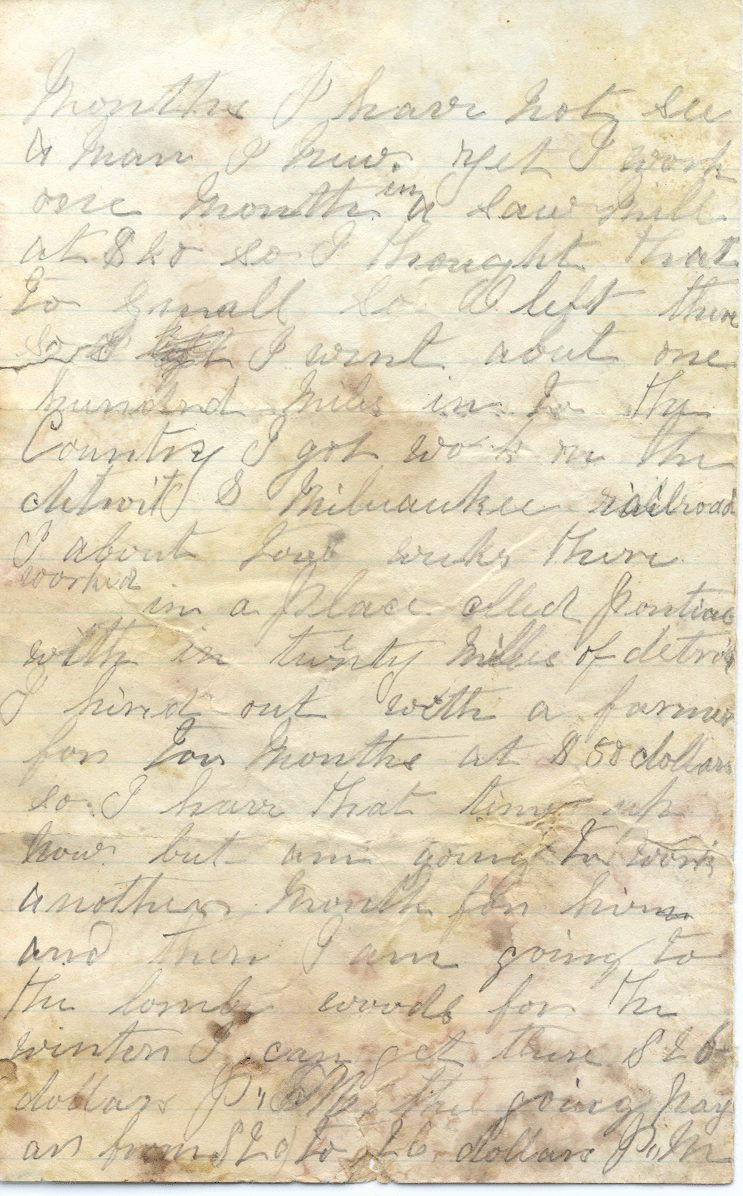 Months I have not see
a man I knew. yet I work
one month in a saw Mill
at $20 so I thought that
to small so I left there
so I went about one
hundrd miles in to the
Country I got work on the
detroit & Milwaukee railroad
I about two weeks there
worked
in a place clled Pontiac
with in twenty Miles of detroit
I hired out with a farmer
for two Months at $50 dollars
so I have that time up
now but am going to work
another Month for him
and then I am going to
the lombr woods for the
winter I can get there $26
dollars P" M. the going pay
ar from $20 to 26 dollars P" M